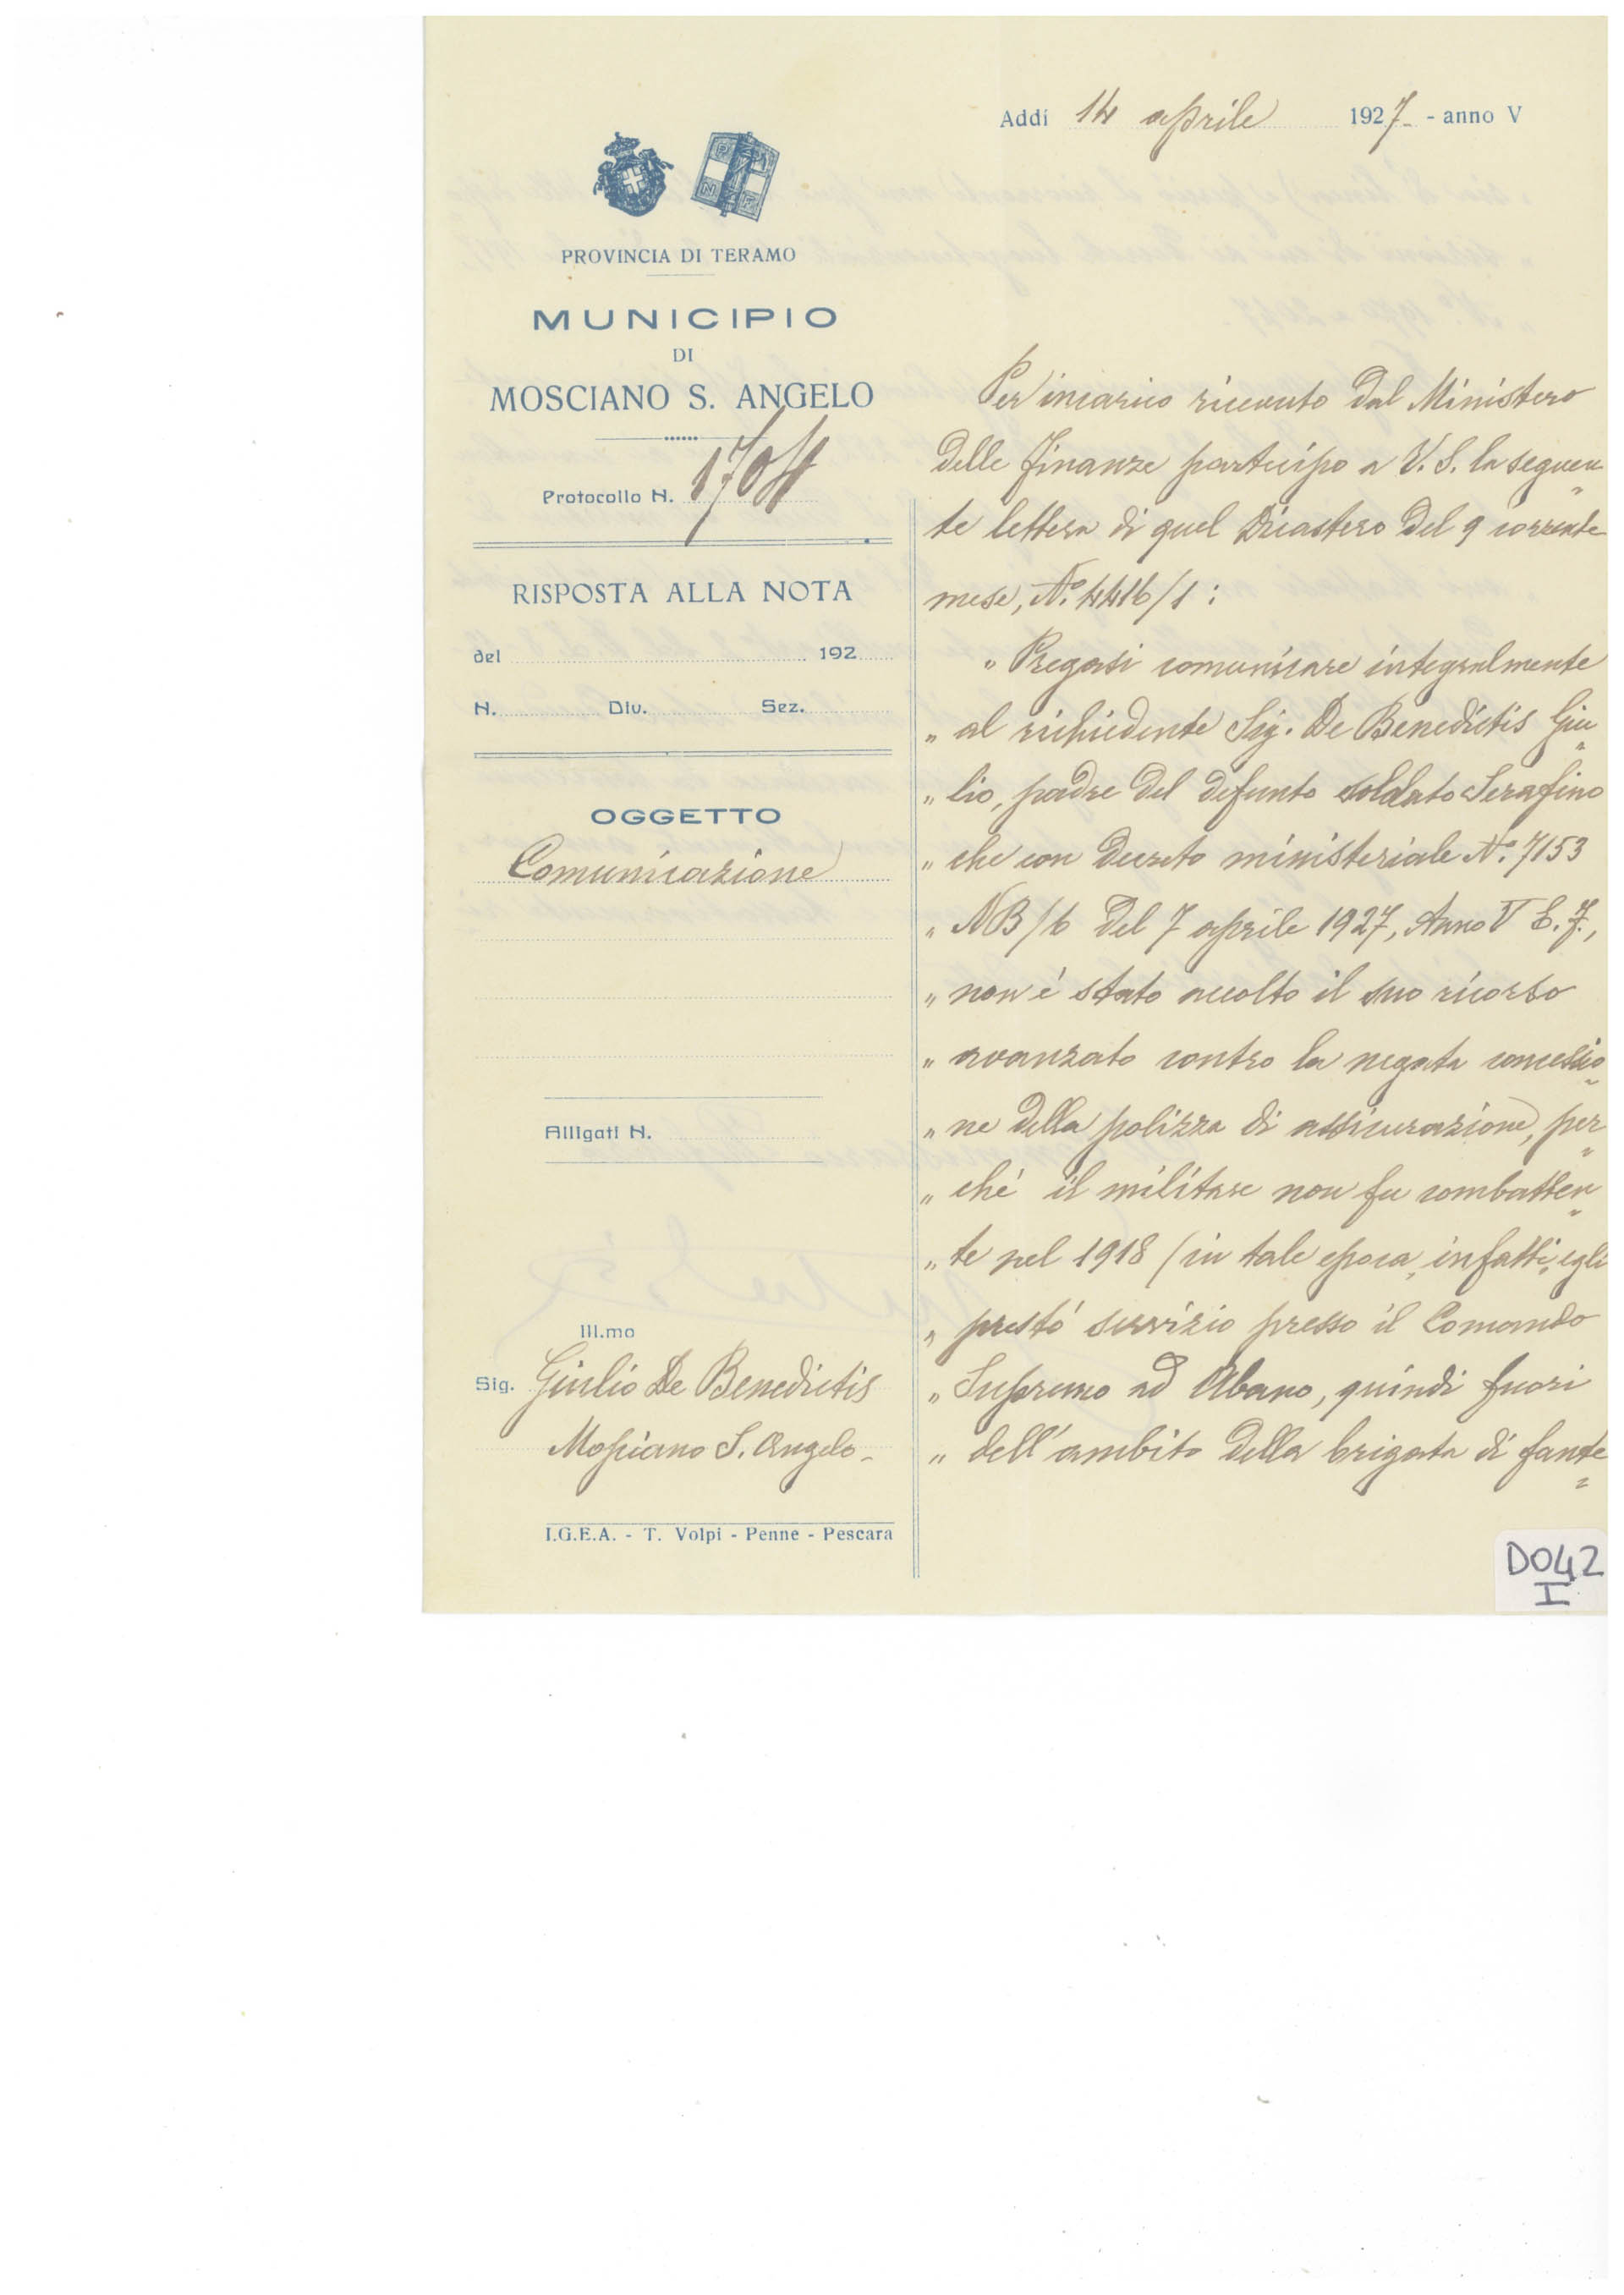 Addi 14 aprile 1927 - anno V
PROVINCIA DI TERAMO
MUNICIPIO
DI
MOSCIANO S. ANGELO
Protocollo N. 1704
RISPOSTA ALLA NOTA
del 192
N. Div. Sez.
OGGETTO
Comunicazione
Alligati N.
Ill.mo
Sig. Giulio De Benedictis
Mosciano S. Angelo.
I.G.E.A. - T. Volpi - Penne - Pescara
Per incarico ricevuto dal Ministero
delle Finanze partecipo a V. S. la seguen
te lettera di quel Dicastero del 9 corrente
mese, N.° 4416/1:
" Pregasi comunicare integralmente
" al richiedente Sig. De Benedictis Giu
" lio, padre del defunto soldato Serafino
" che con Decreto ministeriale N.° 7153
" NB/6 del 7 aprile 1927, Anno V E. F.,
" non è stato accolto il suo ricorso
" avanzato contro la negata concessio
" ne della polizza di assicurazione, per
" ché il militare non fu combatten
" te nel 1918 (in tale epoca, infatti, egli
" prestó servizio presso il Comando
" Supremo ad Abano, quindi fuori
" dell'ambito della brigata di fante
D042
I